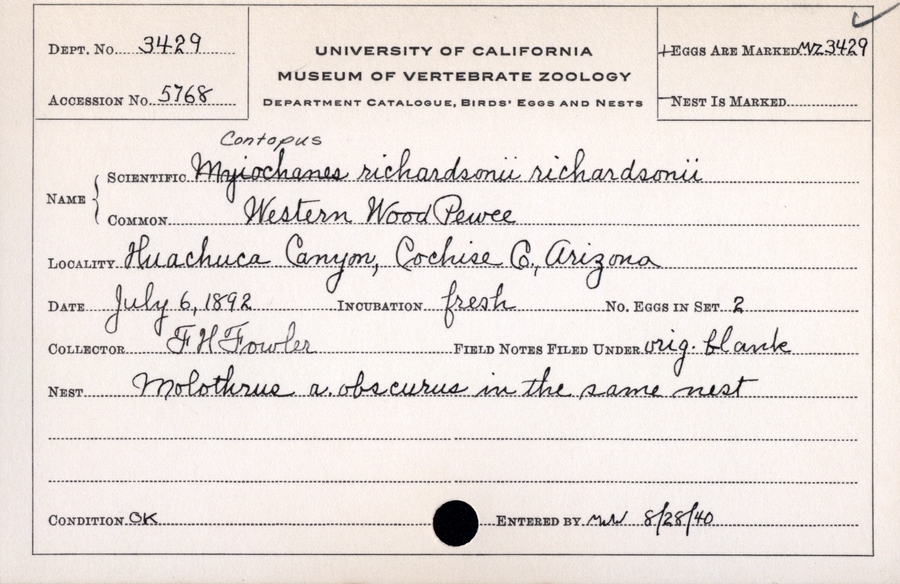 DEPT. NO. 3429
ACCESSION NO. 5768
UNIVERSITY OF CALIFORNIA
MUSEUM OF VERTEBRATE ZOOLOGY
DEPARTMENT CATALOGUE, BIRDS' EGGS AND NESTS
+EGGS ARE MARKED MVZ3429
—NEST IS MARKED
Contopus
NAME
SCIENTIFIC Myiochanes richardsonii richardsonii
COMMON Western Wood Pewee
LOCALITY Huachuca Canyon, Cochise Co., Arizona
DATE July 6, 1892 INCUBATION fresh NO. EGGS IN SET 2
COLLECTOR F H Fowler FIELD NOTES FILED UNDER orig. blank
NEST Molothrus a. obscurus in the same nest
CONDITION OK ENTERED BY 8/28/40